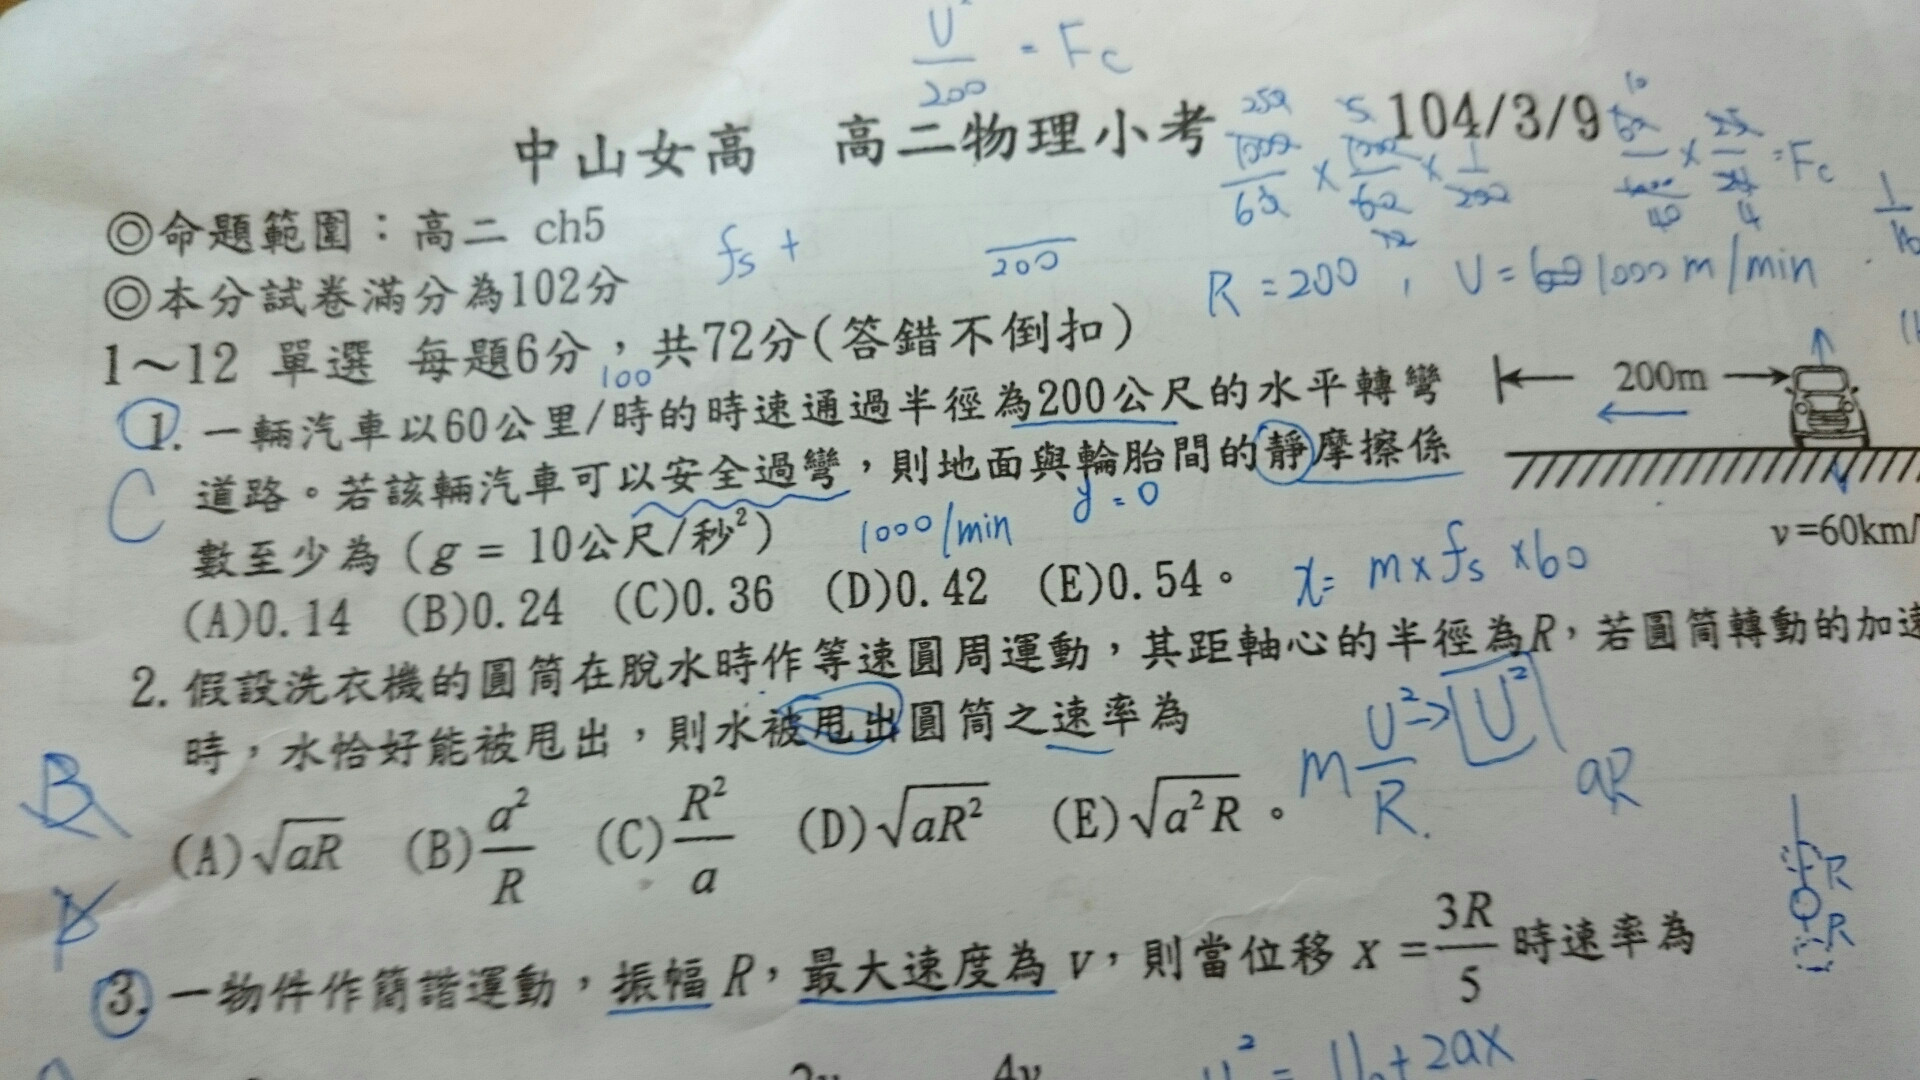 U²/200 = Fc
中山女高 高二物理小考 104/3/9
◎命題範圍：高二 ch5
fs +
200
R = 200 , U = 1000 m/min
◎本分試卷滿分為102分
1～12 單選 每題6分，共72分(答錯不倒扣)
100
200m
1. 一輛汽車以60公里/時的時速通過半徑為200公尺的水平轉彎
C
道路。若該輛汽車可以安全過彎，則地面與輪胎間的靜摩擦係
數至少為 (g = 10公尺/秒²)
1000/min
y = 0
v=60km/
(A)0.14 (B)0.24 (C)0.36 (D)0.42 (E)0.54。
x = m×fs×60
2. 假設洗衣機的圓筒在脫水時作等速圓周運動，其距軸心的半徑為R，若圓筒轉動的加速
時，水恰好能被甩出，則水被甩出圓筒之速率為
m U²/R → U²
aR
B
(A)√aR (B)a²/R (C)R²/a (D)√aR² (E)√a²R。
R
R
3. 一物件作簡諧運動，振幅 R，最大速度為 v，則當位移 x = 3R/5 時速率為
4v
+ 2ax